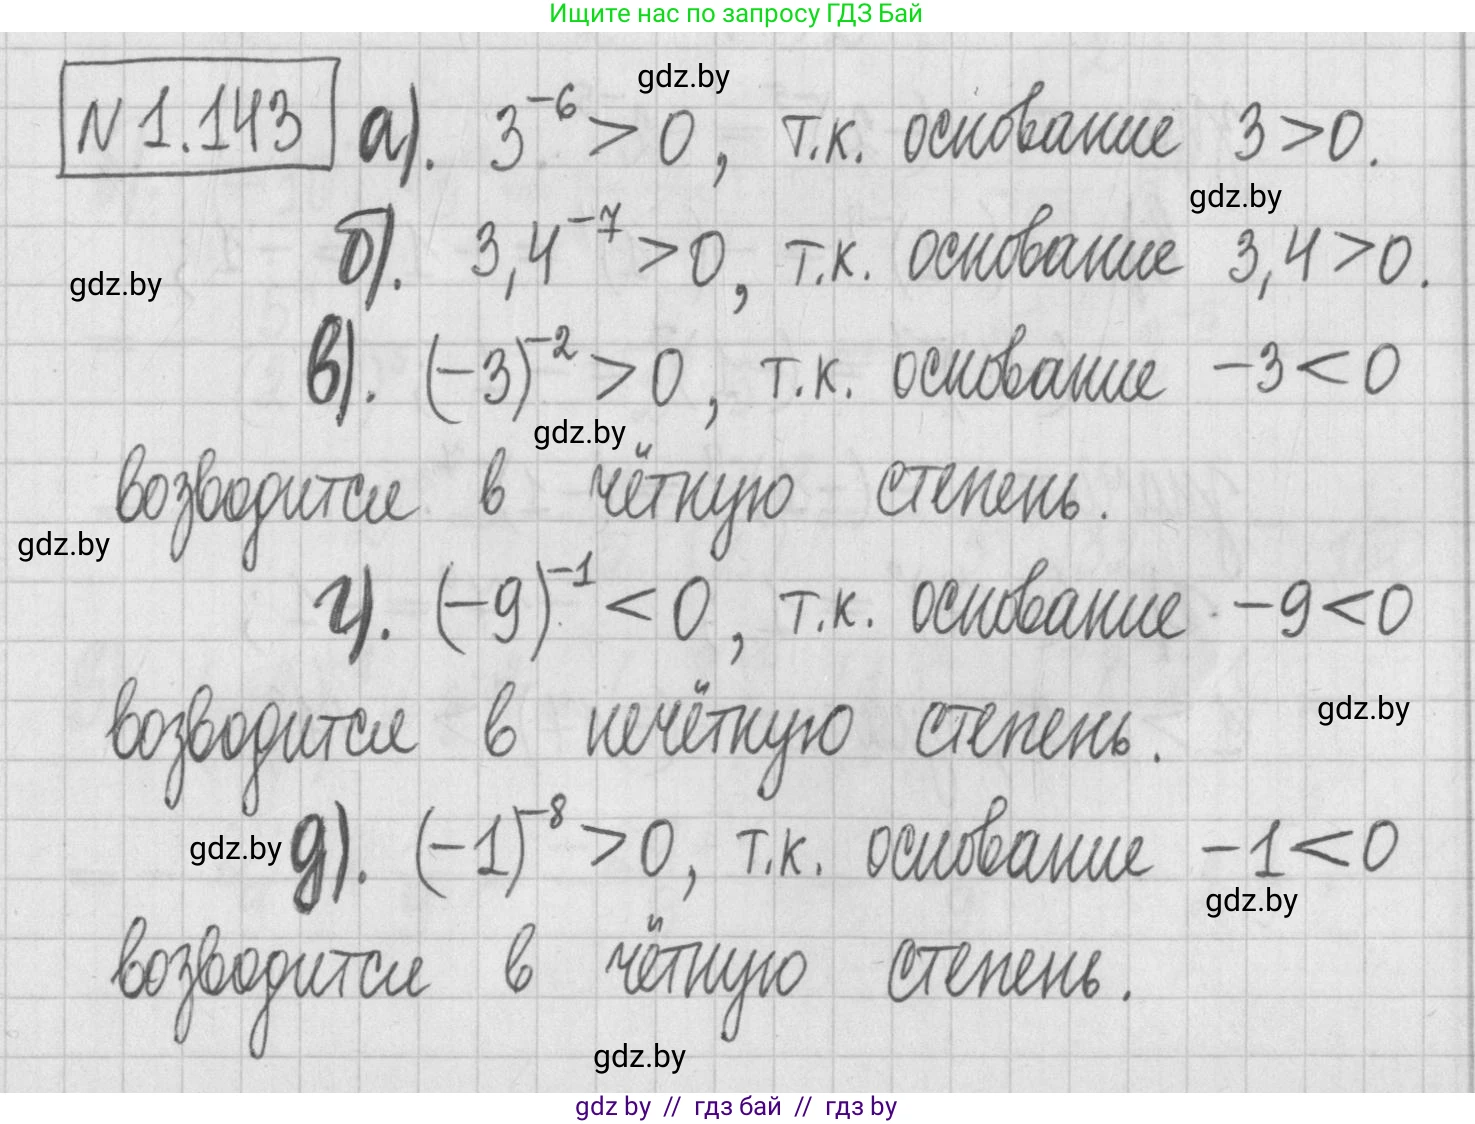 Ищите нас по запросу ГДЗ Бай
gdz.by
N 1.143 а). 3⁻⁶ > 0, т.к. основание 3 > 0.
gdz.by
б). 3,4⁻⁷ > 0, т.к. основание 3,4 > 0.
gdz.by
в). (-3)⁻² > 0, т.к. основание -3 < 0
gdz.by
возводится в чётную степень.
gdz.by
г). (-9)⁻¹ < 0, т.к. основание -9 < 0
gdz.by
возводится в нечётную степень.
gdz.by д). (-1)⁻⁸ > 0, т.к. основание -1 < 0
gdz.by
возводится в чётную степень.
gdz.by
gdz by // гдз бай // гдз by